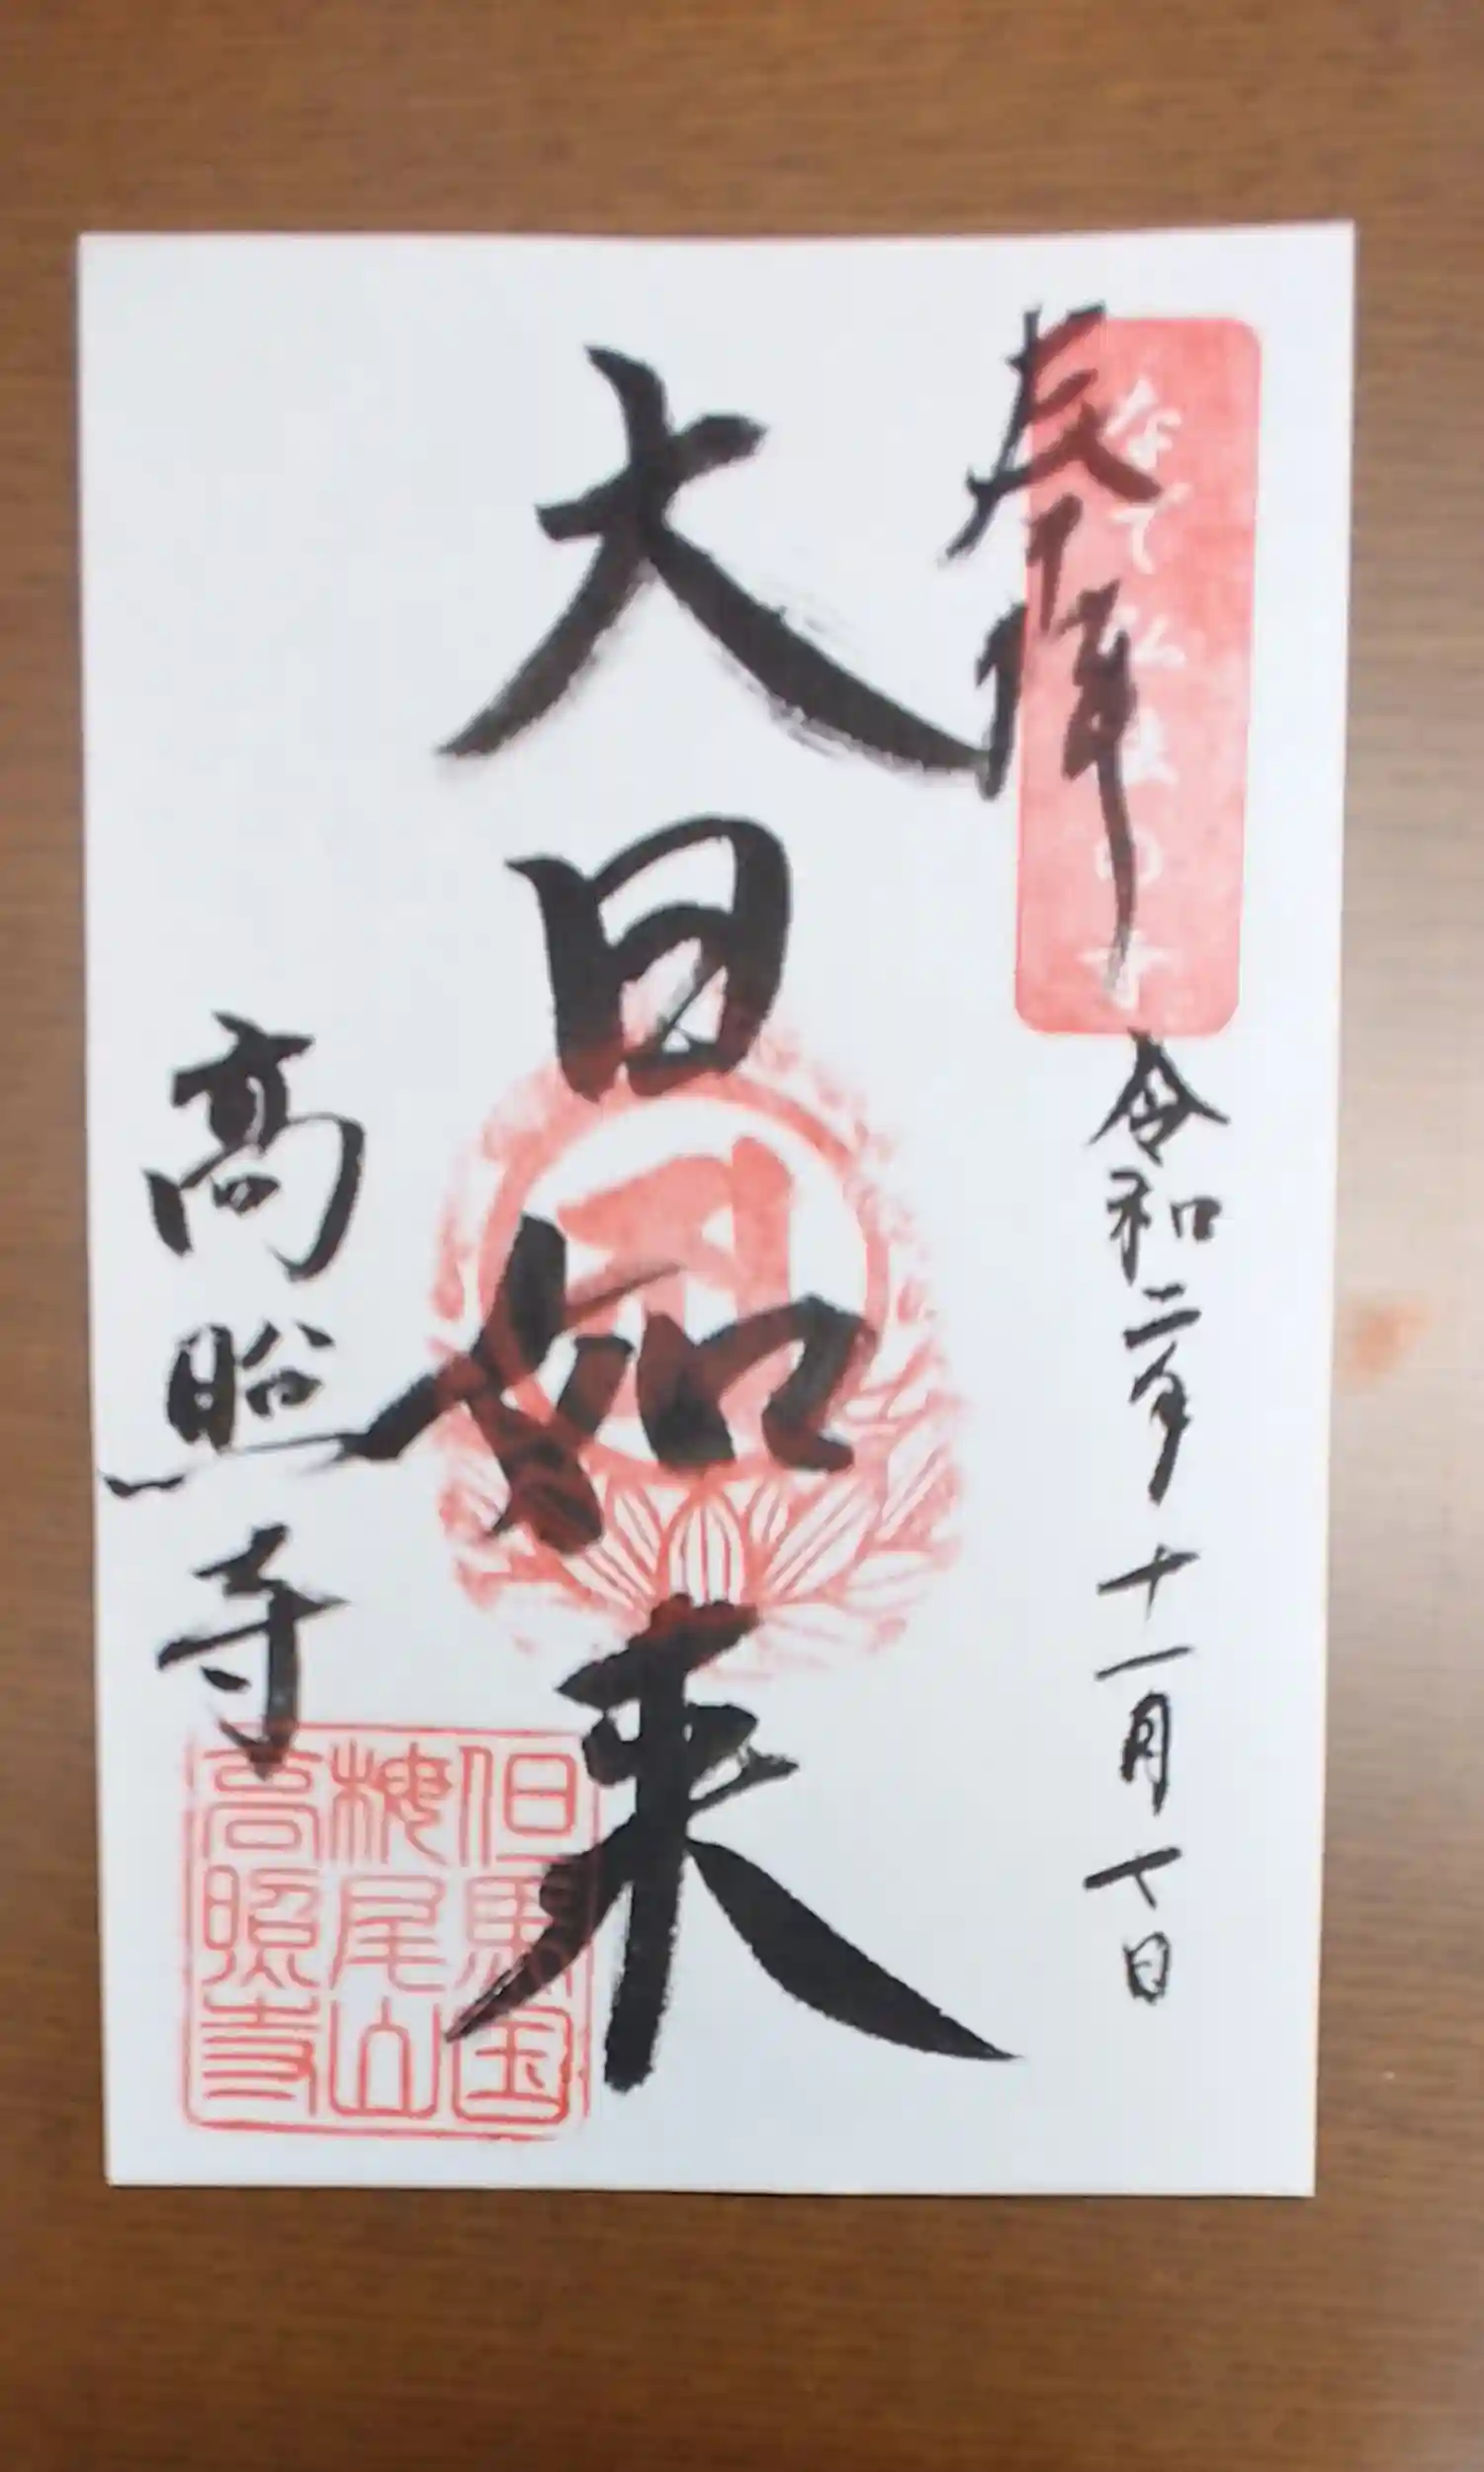 奉拝
なで仏
の寺
令和二年十一月七日
大日如来
高照寺
但馬国
桜尾山
高照寺